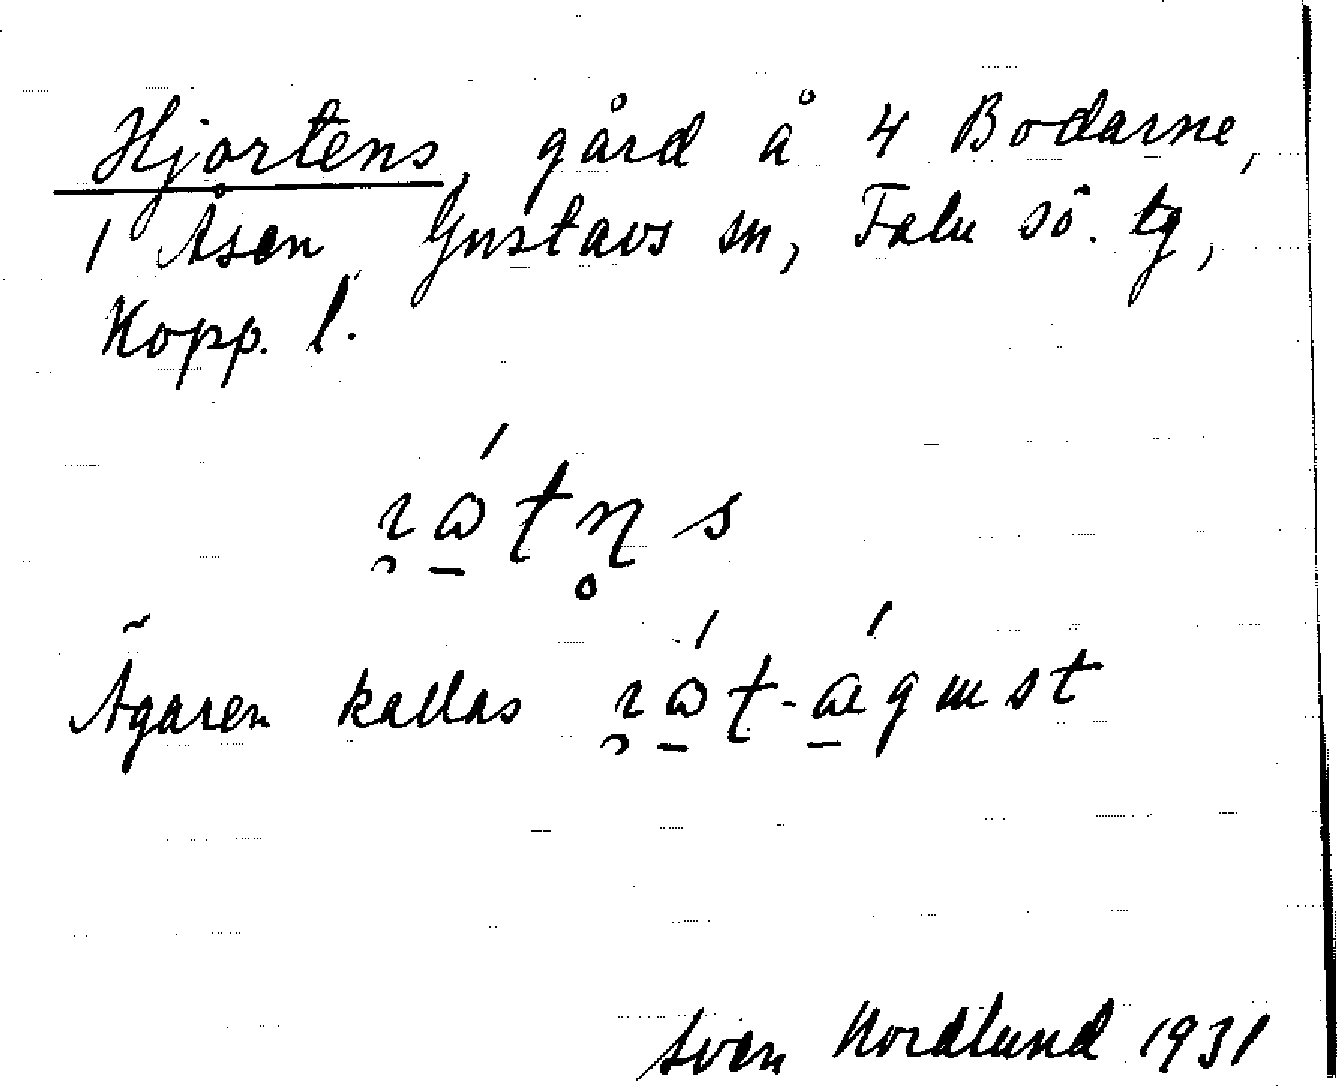 Hjortens, gård å 4 Bodarne,
1 Åsen Gustavs sn, Falu sö. tg,
Kopp. l.
Ägaren kallas
Sven Nordlund 1931